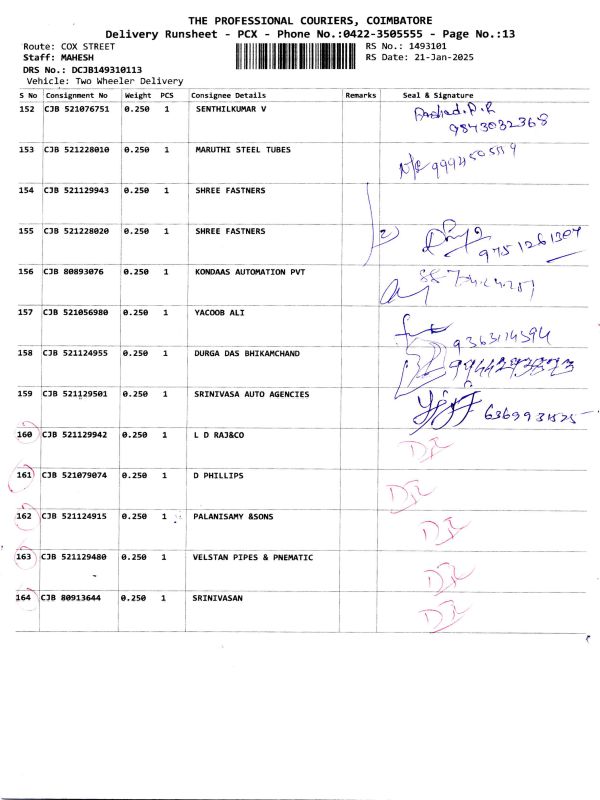 THE PROFESSIONAL COURIERS, COIMBATORE
Delivery Runsheet - PCX - Phone No.:0422-3505555 - Page No.:13
Route: COX STREET RS No.: 1493101
Staff: MAHESH RS Date: 21-Jan-2025
DRS No.: DCJB149310113
Vehicle: Two Wheeler Delivery
S No Consignment No Weight PCS Consignee Details Remarks Seal & Signature
152 CJB 521076751 0.250 1 SENTHILKUMAR V
9873032368
153 CJB 521228010 0.250 1 MARUTHI STEEL TUBES
154 CJB 521129943 0.250 1 SHREE FASTNERS
155 CJB 521228020 0.250 1 SHREE FASTNERS 2)
9751261307
156 CJB 80893076 0.250 1 KONDAAS AUTOMATION PVT
157 CJB 521056980 0.250 1 YACOOB ALI
9363114394
158 CJB 521124955 0.250 1 DURGA DAS BHIKAMCHAND
159 CJB 521129501 0.250 1 SRINIVASA AUTO AGENCIES
160 CJB 521129942 0.250 1 L D RAJ&CO
161 CJB 521079074 0.250 1 D PHILLIPS
162 CJB 521124915 0.250 1 PALANISAMY &SONS
163 CJB 521129480 0.250 1 VELSTAN PIPES & PNEMATIC
164 CJB 80913644 0.250 1 SRINIVASAN